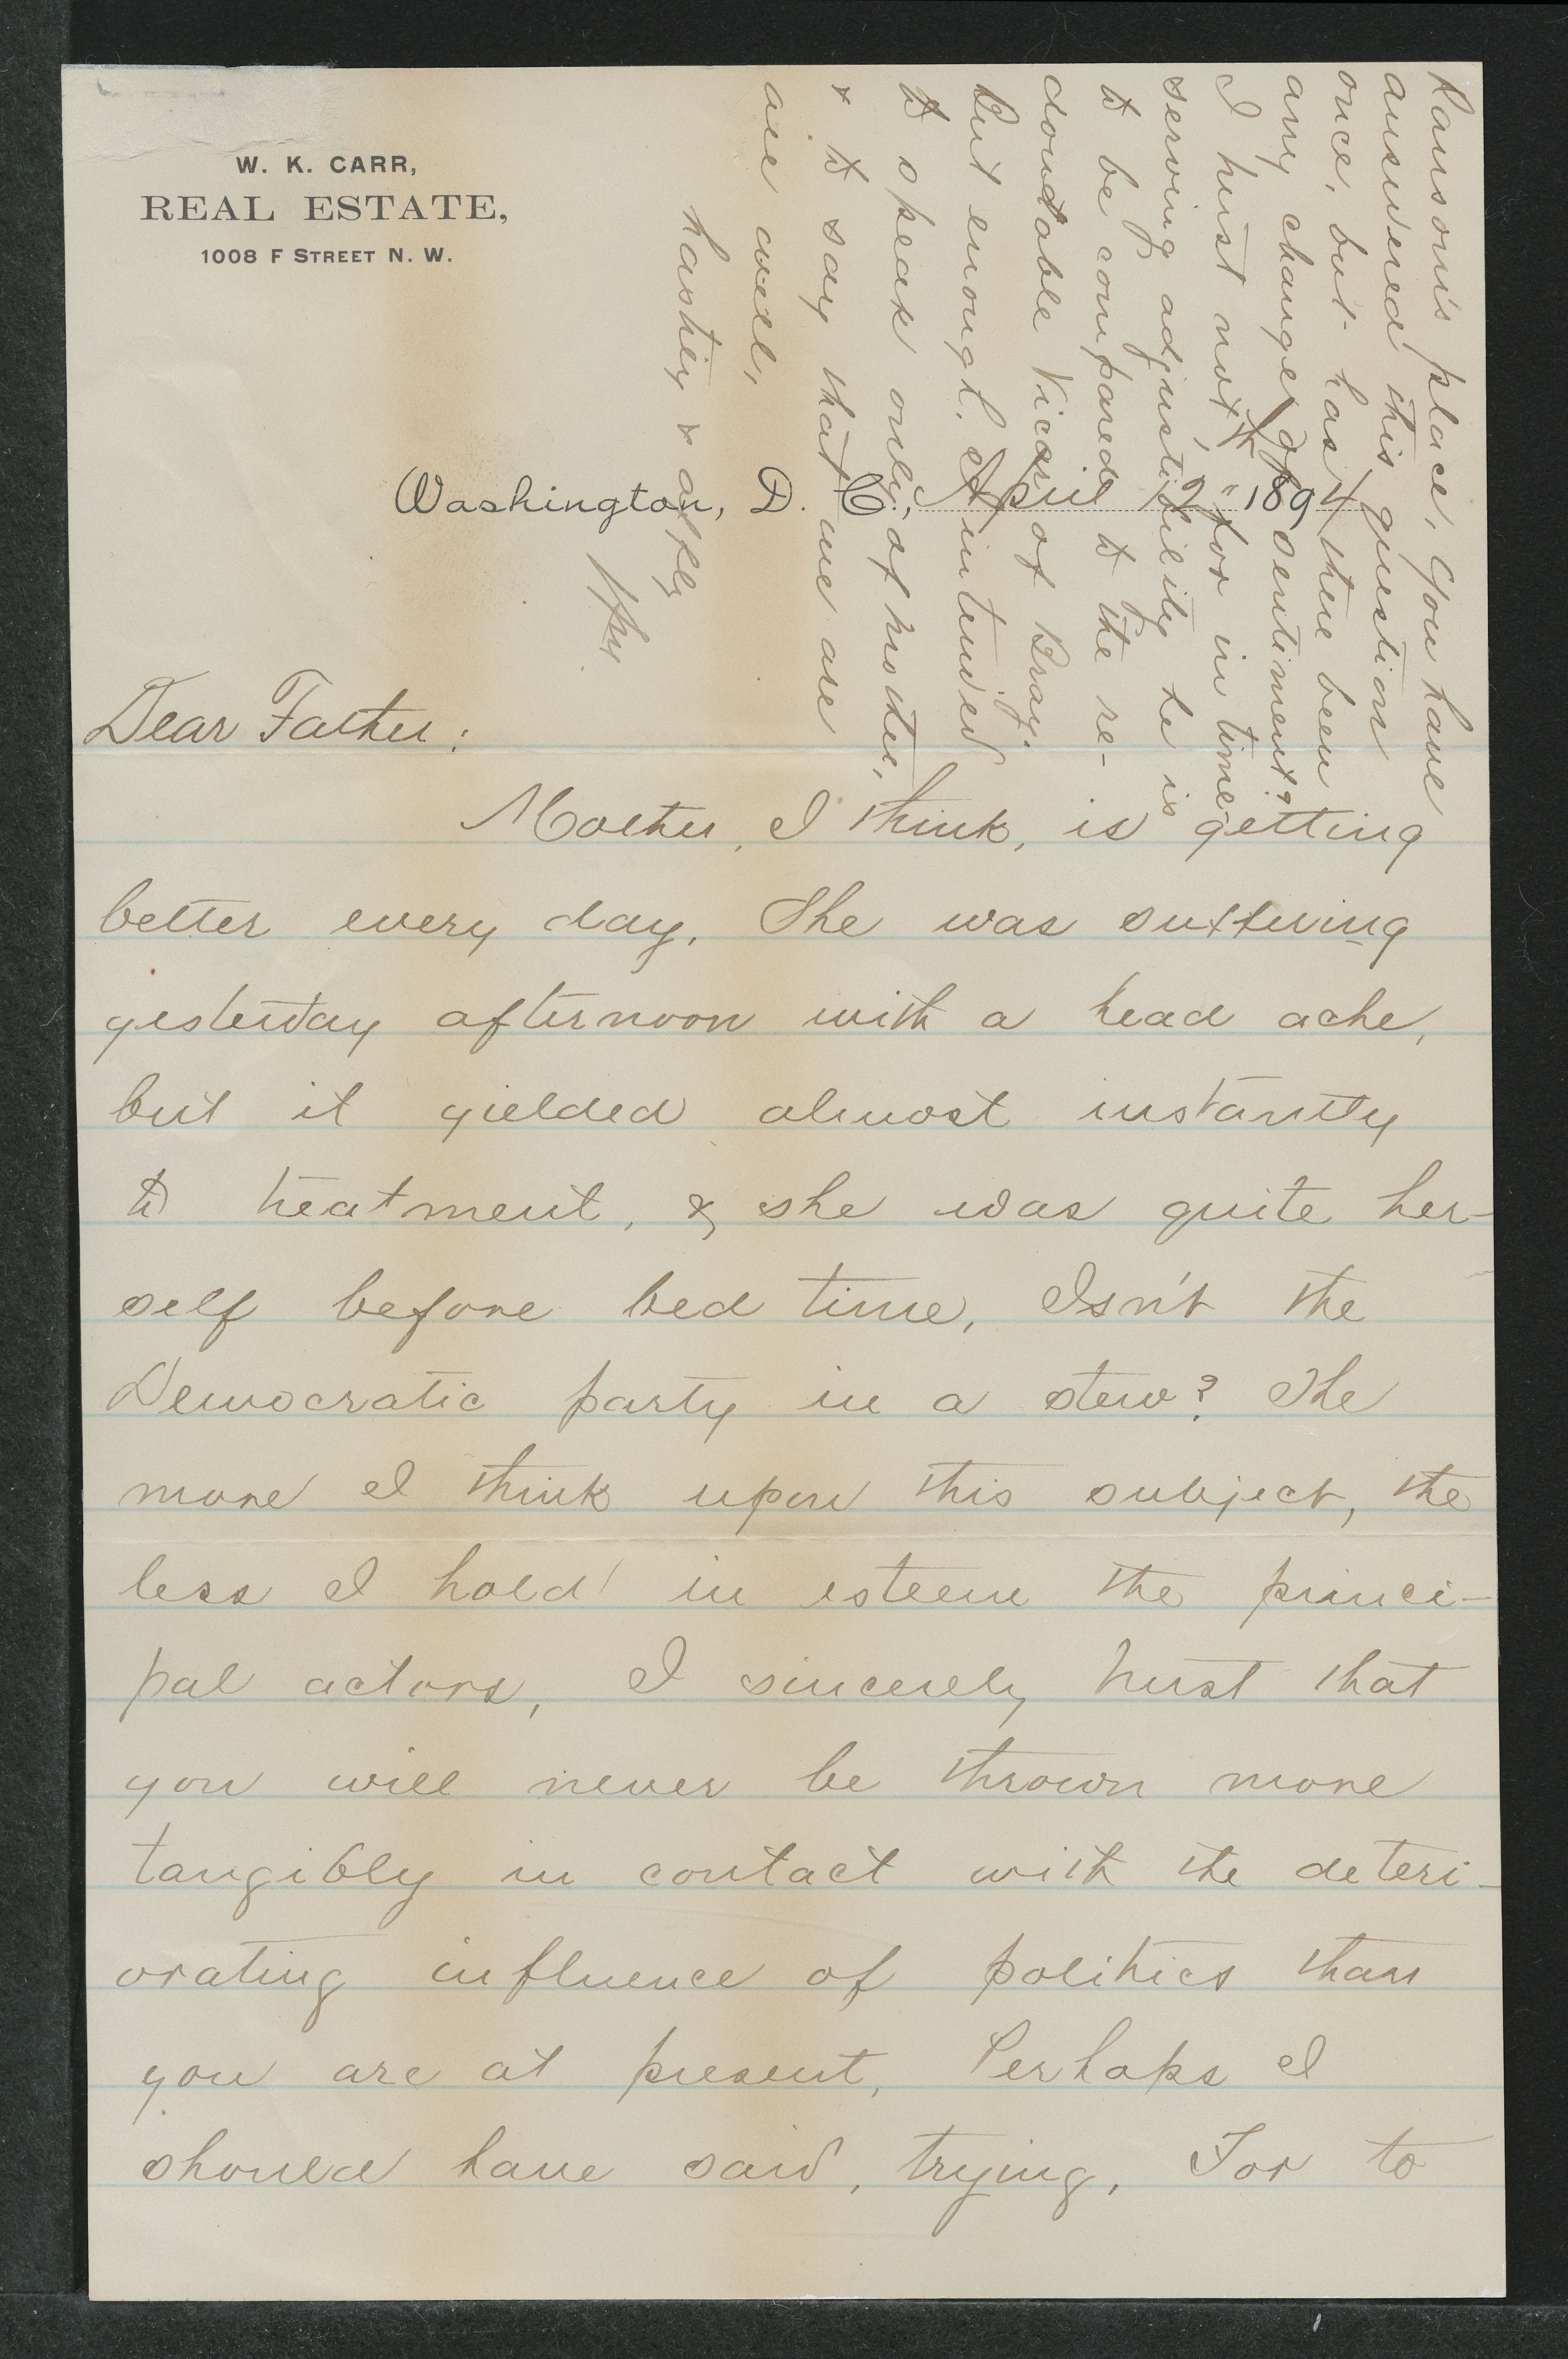 W. K. CARR,
REAL ESTATE,
1008 F STREET N. W.
Washington, D. C., April 12" 1894
Dear Father:
Mother, I think, is getting
better every day. She was suffering
yesterday afternoon with a head ache,
but it yielded almost instantly
to treatment, & she was quite her-
self before bed time. Isn't the
Democratic party in a stew? The
more I think upon this subject, the
less I hold in esteem the princi-
pal actors, I sincerely trust that
you will never be thrown more
tangibly in contact with the deteri-
orating influence of politics than
you are at present, Perhaps I
should have said, trying, For to
Ransom's place, You have
answered this question
once, but has there been
any change of sentiment?
I trust not, for in time-
serving adjustibility he is
to be compared to the re-
doubtable Vicar of Bray.
But enough. I intended
to speak only of mother,
& to say that we are
all well,
hastily & affly